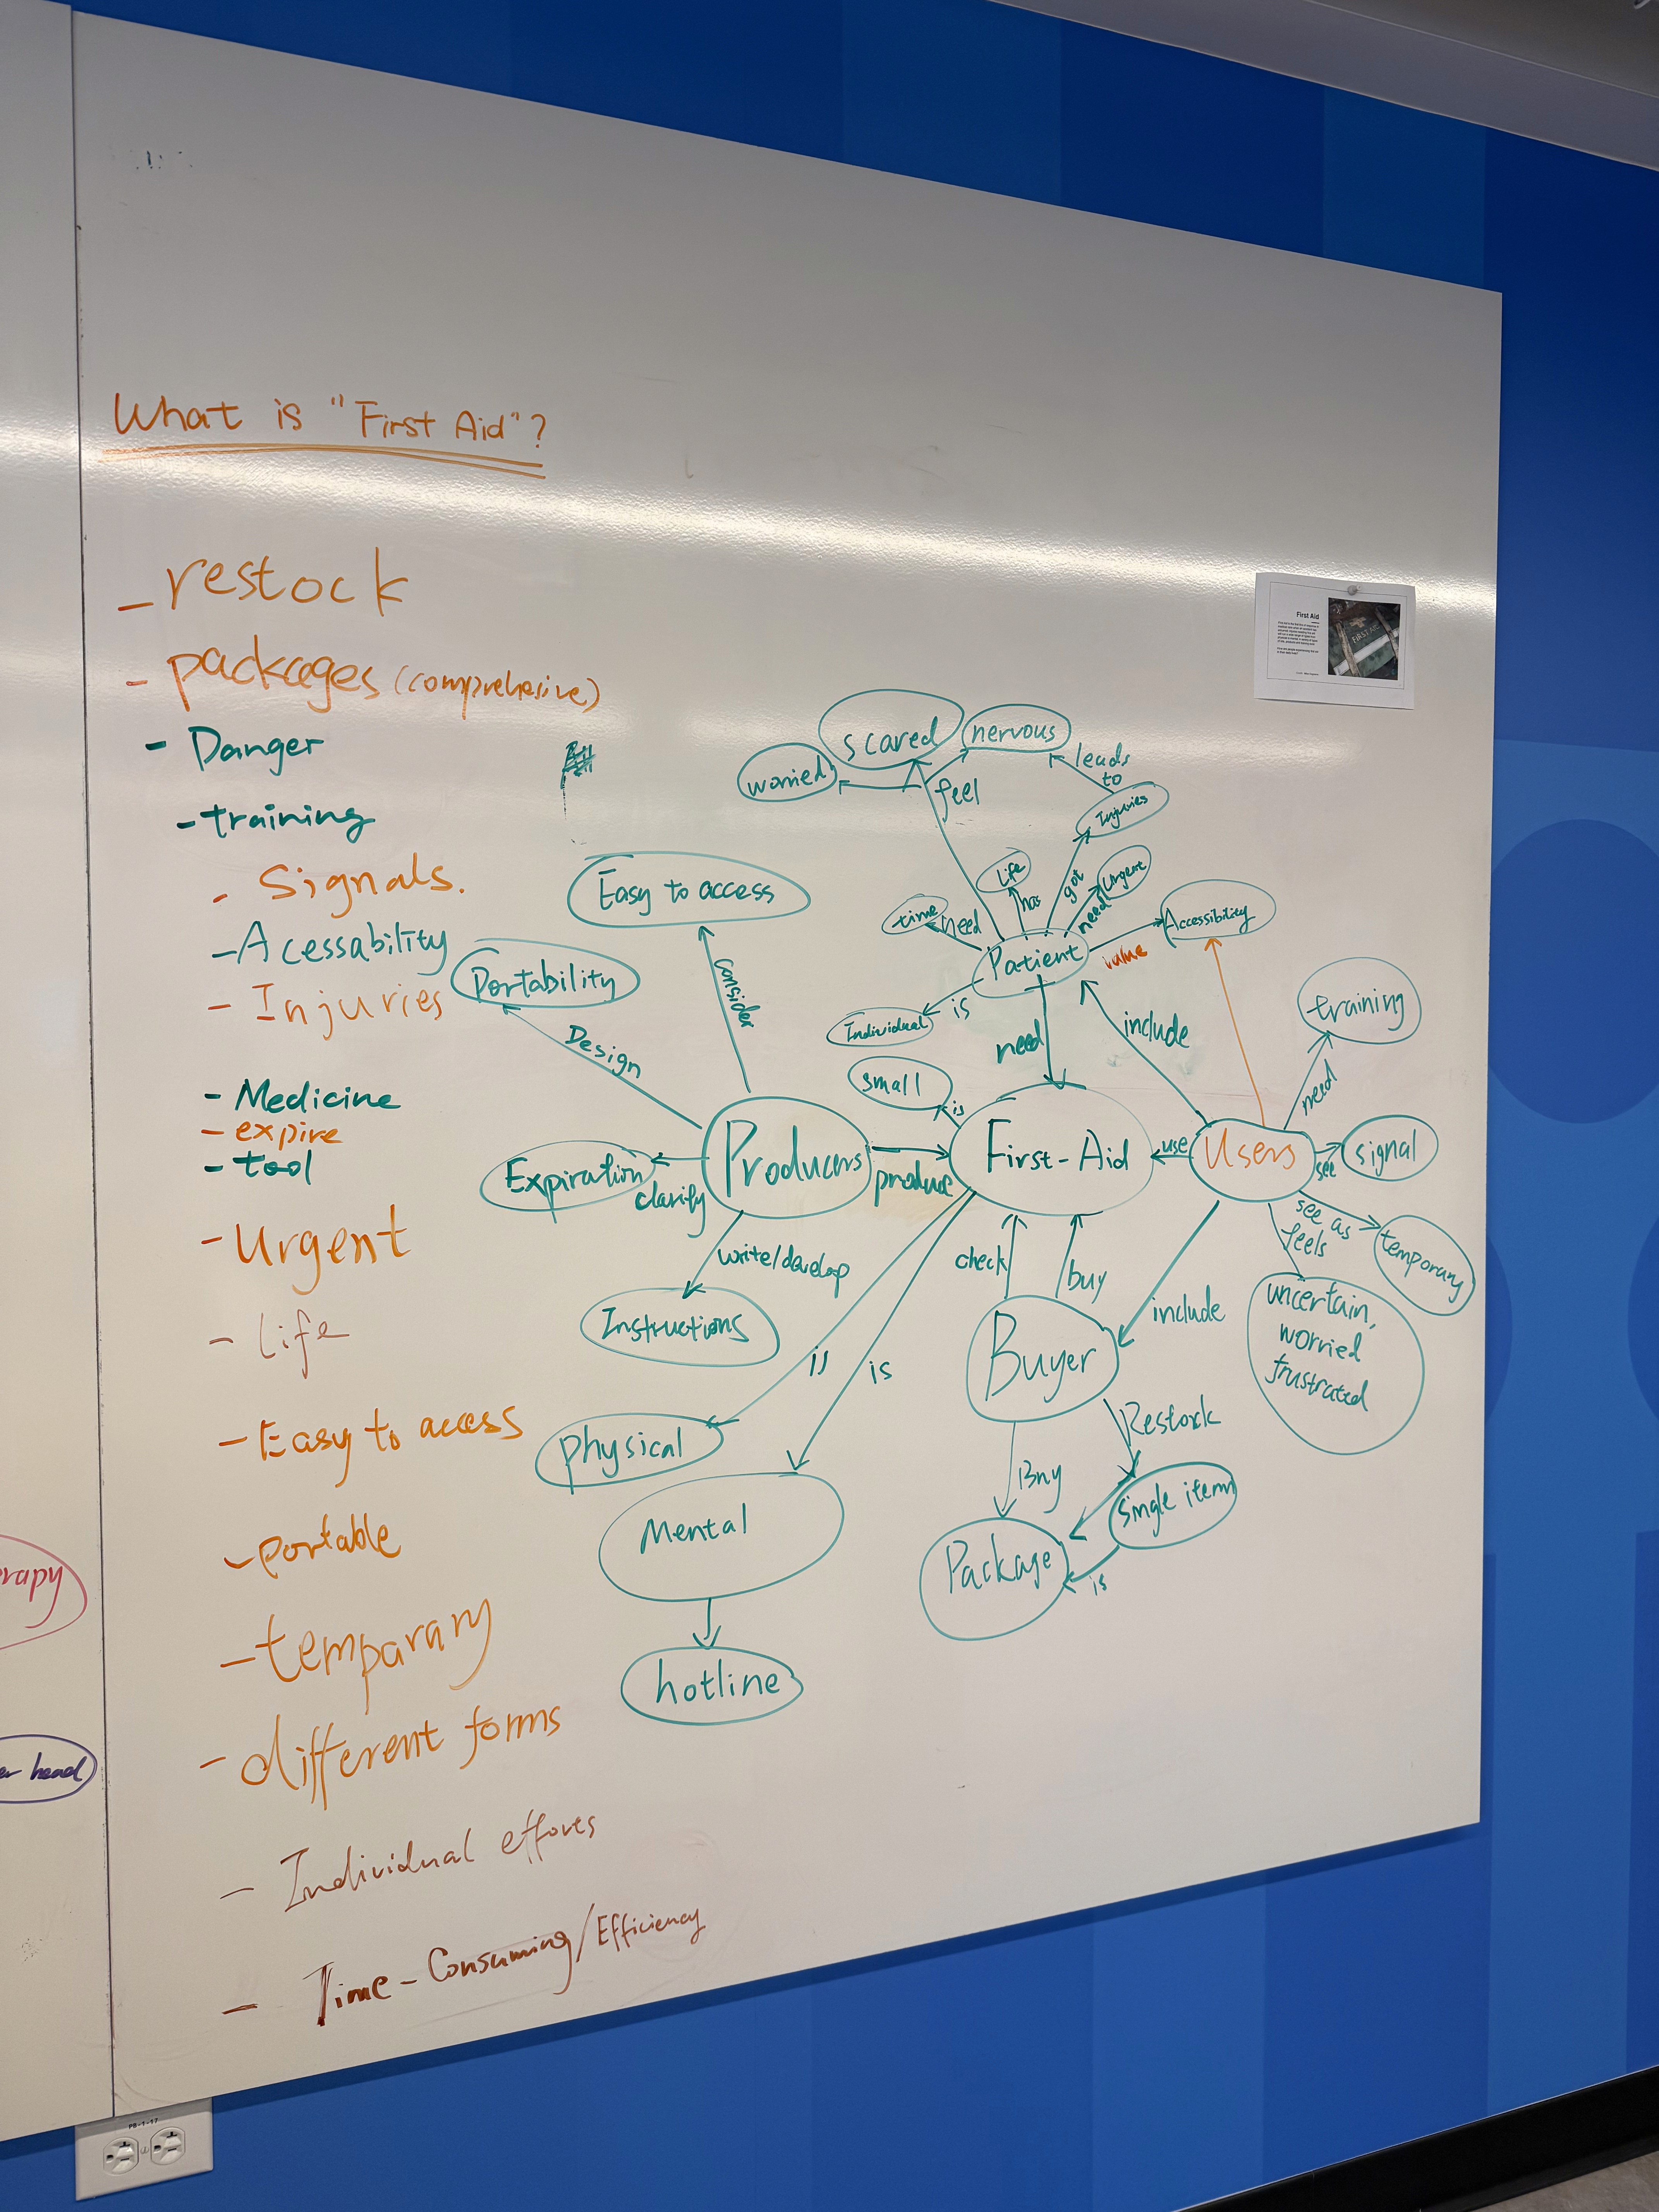 What is "First Aid"?
- restock
- packages (comprehesive)
- Danger
- training
- Signals.
- Acessability
- Injuries
- Medicine
- expire
- tool
- Urgent
- Life
- Easy to access
- portable
- temparary
- different forms
- Individual efforts
- Time-Consuming/Efficiency
First Aid
FIRST AID
scared
nervous
worried
feel
leads
to
Injuries
Life
has
got
need
Urgent
time
need
Patient
value
Accessibility
Individual
is
need
include
training
need
Easy to access
consider
Portability
Design
small
is
Producers
produce
First-Aid
use
Users
see
signal
see as
temporary
feels
uncertain,
worried
frustrated
Expiration
clarify
write/develop
Instructions
is
is
physical
Mental
hotline
check
buy
Buyer
include
Restock
Buy
single item
Package
is
rapy
head
PB-1-17